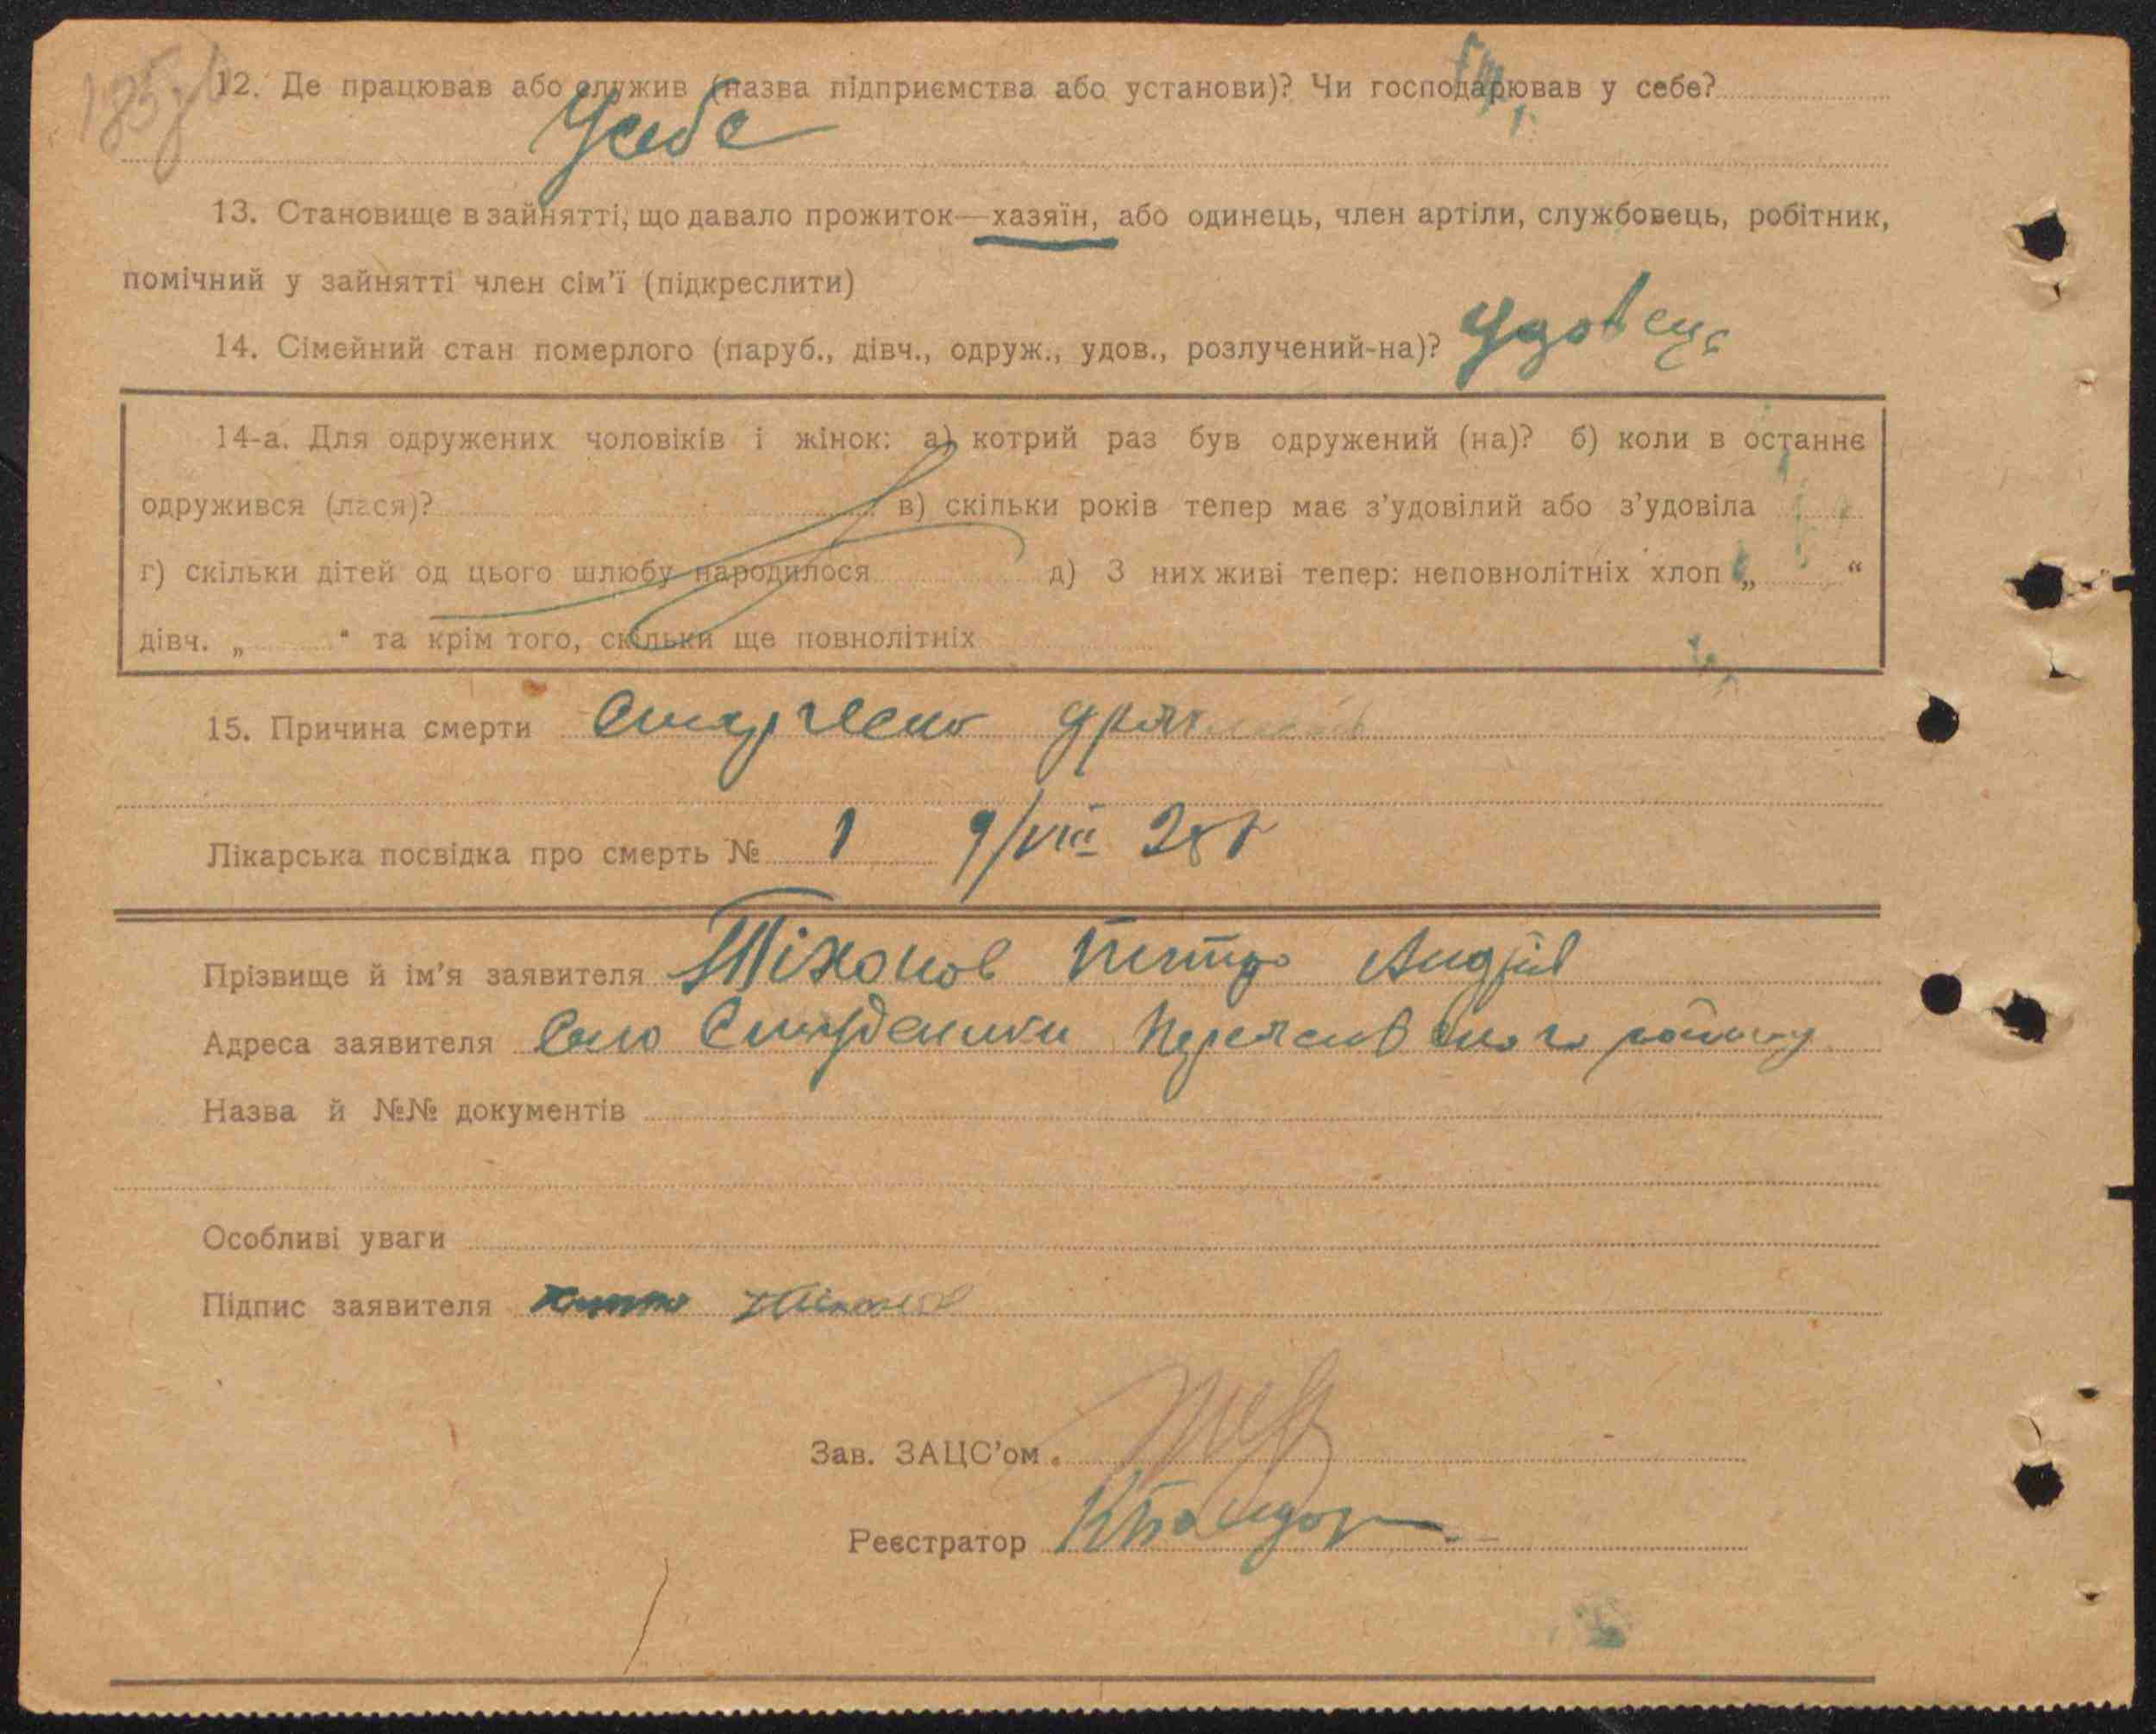 12. Де працював або служив (назва підприємства або установи)? Чи господарював у себе?
У себе
13. Становище в зайнятті, що давало прожиток—хазяїн, або одинець, член артіли, службовець, робітник,
помічний у зайнятті член сім'ї (підкреслити)
14. Сімейний стан померлого (паруб., дівч., одруж., удов., розлучений-на)? Удовець
14-а. Для одружених чоловіків і жінок: а) котрий раз був одружений (на)? б) коли в останнє
одружився (лася)? в) скільки років тепер має з'удовілий або з'удовіла
г) скільки дітей од цього шлюбу народилося д) З них живі тепер: неповнолітніх хлоп „ “
дівч. „ “ та крім того, скільки ще повнолітніх
15. Причина смерти
Лікарська посвідка про смерть № 1 9/VIII 28 г
Прізвище й ім'я заявителя Тіхонов Петро Андрїів
Адреса заявителя Село Студеники Переяславського району
Назва й №№ документів
Особливі уваги
Підпис заявителя
Зав. ЗАЦС'ом
Реєстратор